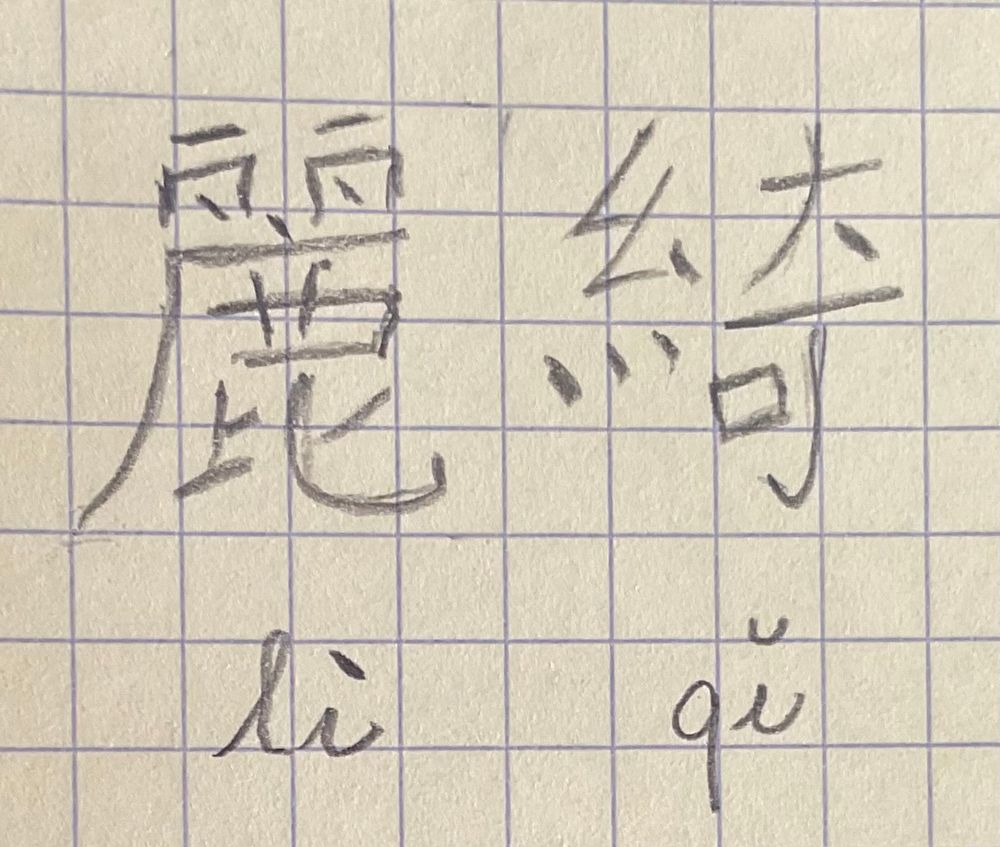 麗綺
lì qǐ